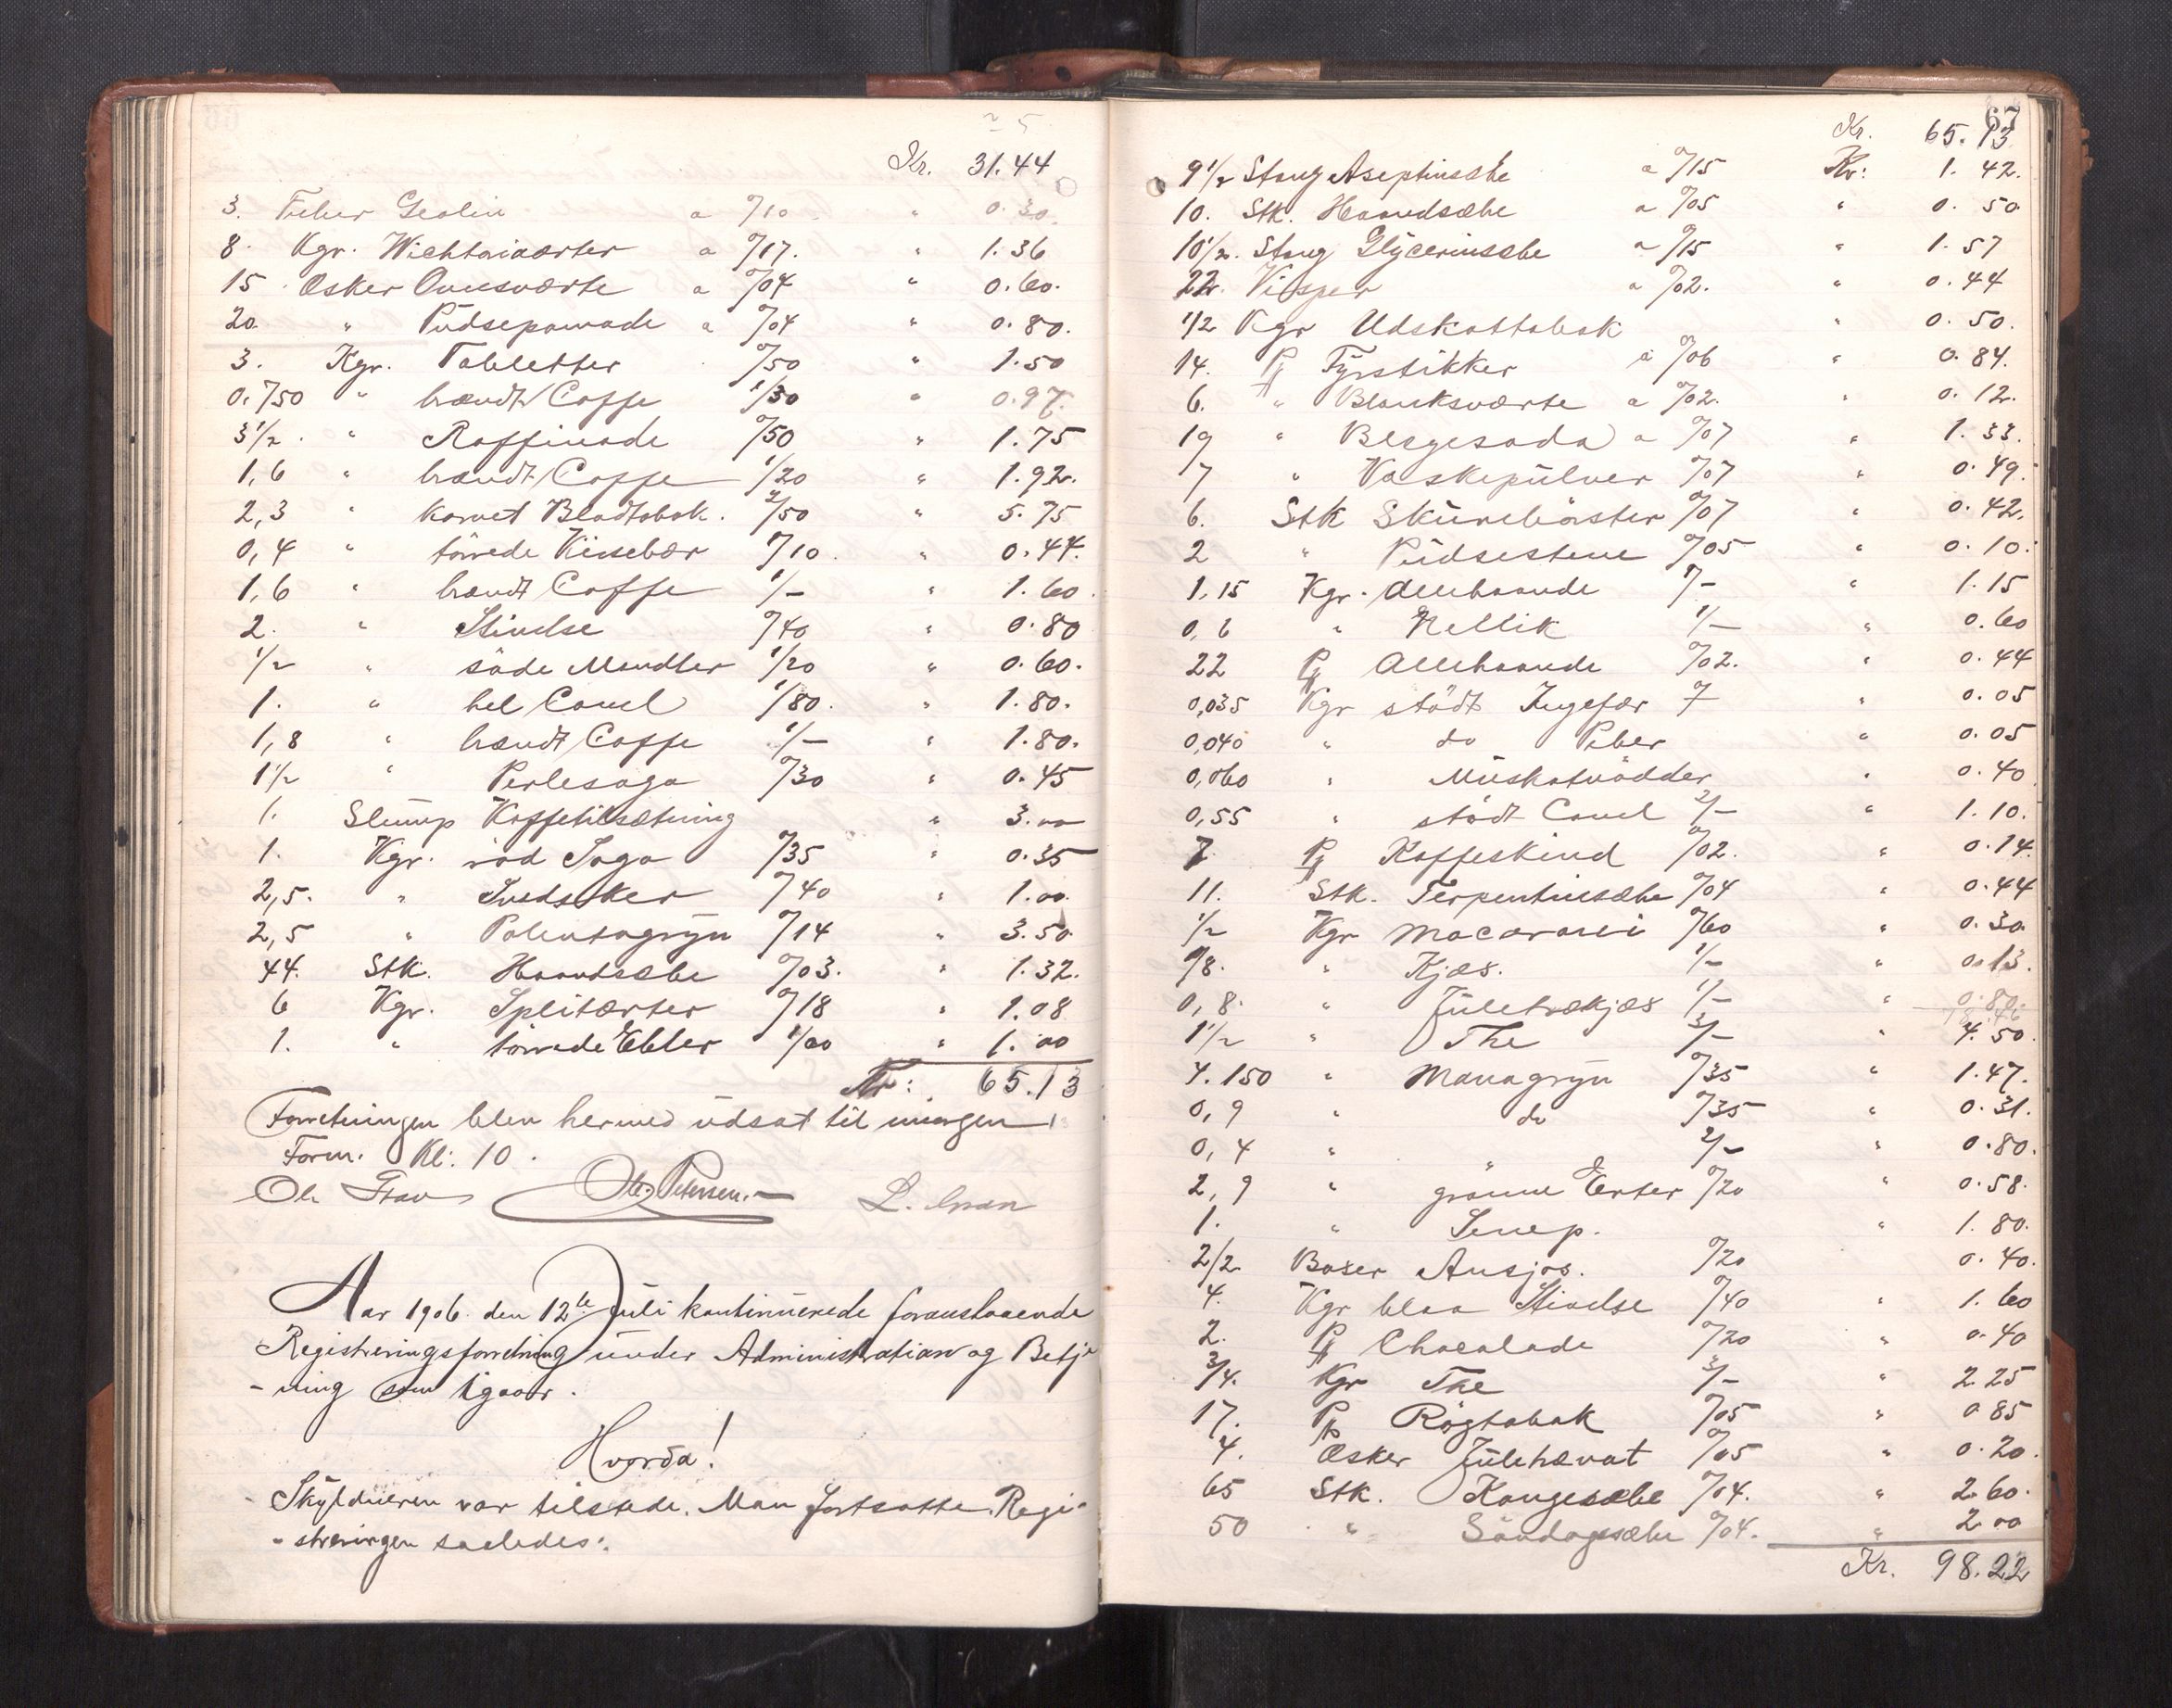 Kr. 31.44
3. Tuber Geolin a 0/10 " 0.30
8. Kgr. Wichtoriaærter a 0/17. " 1.36
15 Æsker Ovnsværte a 0/04 " 0.60.
20 " Pudsepomade a 0/04 " 0.80.
3. Kgr. Tabletter 0/50 " 1.50
0.750 " brændt Caffe 1/30 " 0.97.
3 1/2. " Raffinade 0/50 " 1.75
1,6 " brændt Caffe 1/20 " 1.92.
2,3 " karvet Bladtobak. 2/50 " 5.75
0,4 " törrede Kirsebær 1/10. " 0.44.
1,6 " brændt Caffe 1/- " 1.60.
2. " Stivelse 0/40 " 0.80
1/2 " söde Mandler 1/20 " 0.60.
1. " hel Canel 1/80. " 1.80.
1,8 " brændt Caffe 1/- " 1.80.
1 1/2 " Perlesago 0/30 " 0.45
1. Slump Kaffetilsætning " 3.00
1. Kgr. röd Sago 0/35 " 0.35
2,5. " 0/40 " 1.00.
2,5 " Polentagryn 0/14 " 3.50
44. Stk. Haandsæbe 0/03. " 1.32.
6 Kgr. Splitærter 0/18 " 1.08
1. " törrede Ebler 1/00 " 1.00
Kr: 65.13
Forretningen blev hermed udsat til imorgen
Form. Kl: 10.
Ole Petersen.
Aar 1906 den 12te Juli kontinuerede foranstaaende
Registreringsforretning under Administration og Betje
-ning som igaar.
Hvorda!
Skyldneren var tilstede. Man fortsatte Regi-
-streringen saaledes:
67
Kr. 65.13
9 1/2 Stang Aseptinsæbe a 0/15 Kr: 1.42.
10. Stk. Haandsæbe a 0/05 " 0.50
10 1/2. Stang Glycerinsæbe a 0/15 " 1.57
22. Visper a 0/02. " 0.44
1/2 Kgr Udskottobak " 0.50.
14. Pk Fyrstikker a 0/06 " 0.84.
6. " Blanksværte a 0/02. " 0.12.
19 " Blegesoda a 0/07 " 1.33.
7 " Vaskepulver 0/07 " 0.49.
6. Stk Skurebörster 0/07 " 0.42.
2 " Pudsestene 0/05 " 0.10.
1,15 Kgr. Allehaande 1/- " 1.15
0,6 " Nellik 1/- " 0.60
22 Pk Allehaande 0/02. " 0.44
0,035 Kgr stödt Ingefær " 0.05
0,040 " do Peber " 0.05
0,060 " Muskatnödder " 0.40
0,55 " stödt Canel 2/- " 1.10.
7 Pk Kaffeskind 0/02. " 0.14.
11. Stk. Terpentinsæbe 0/04 " 0.44
1/2 Kgr Macaroni 0/60 " 0.30
1/8. " Kjæs. 1/- " 0.13.
0,8. " Juletrækjæs 1/- " 0.80.
1 1/2 " The 3/- " 4.50.
4.150 " Managryn 0/35 " 1.47.
0,9 " do 0/35 " 0.31.
0,4 " " 2/- " 0.80.
2,9 " grönne Erter 0/20 " 0.58.
1. " Senep. " 1.80.
2/2 Boxer Ansjos. 0/20 0.40.
4. Kgr blaa Stivelse 0/40 " 1.60
2. Pk Chocolade 0/20 " 0.40
3/4. Kgr The 3/- " 2.25
17. Pk Rögtobak 0/05 " 0.85
4. Æsker 0/05 " 0.20.
65 Stk. Kongesæbe 0/04. " 2.60.
50 " Söndagssæbe 0/04. " 2.00
Kr. 98.22